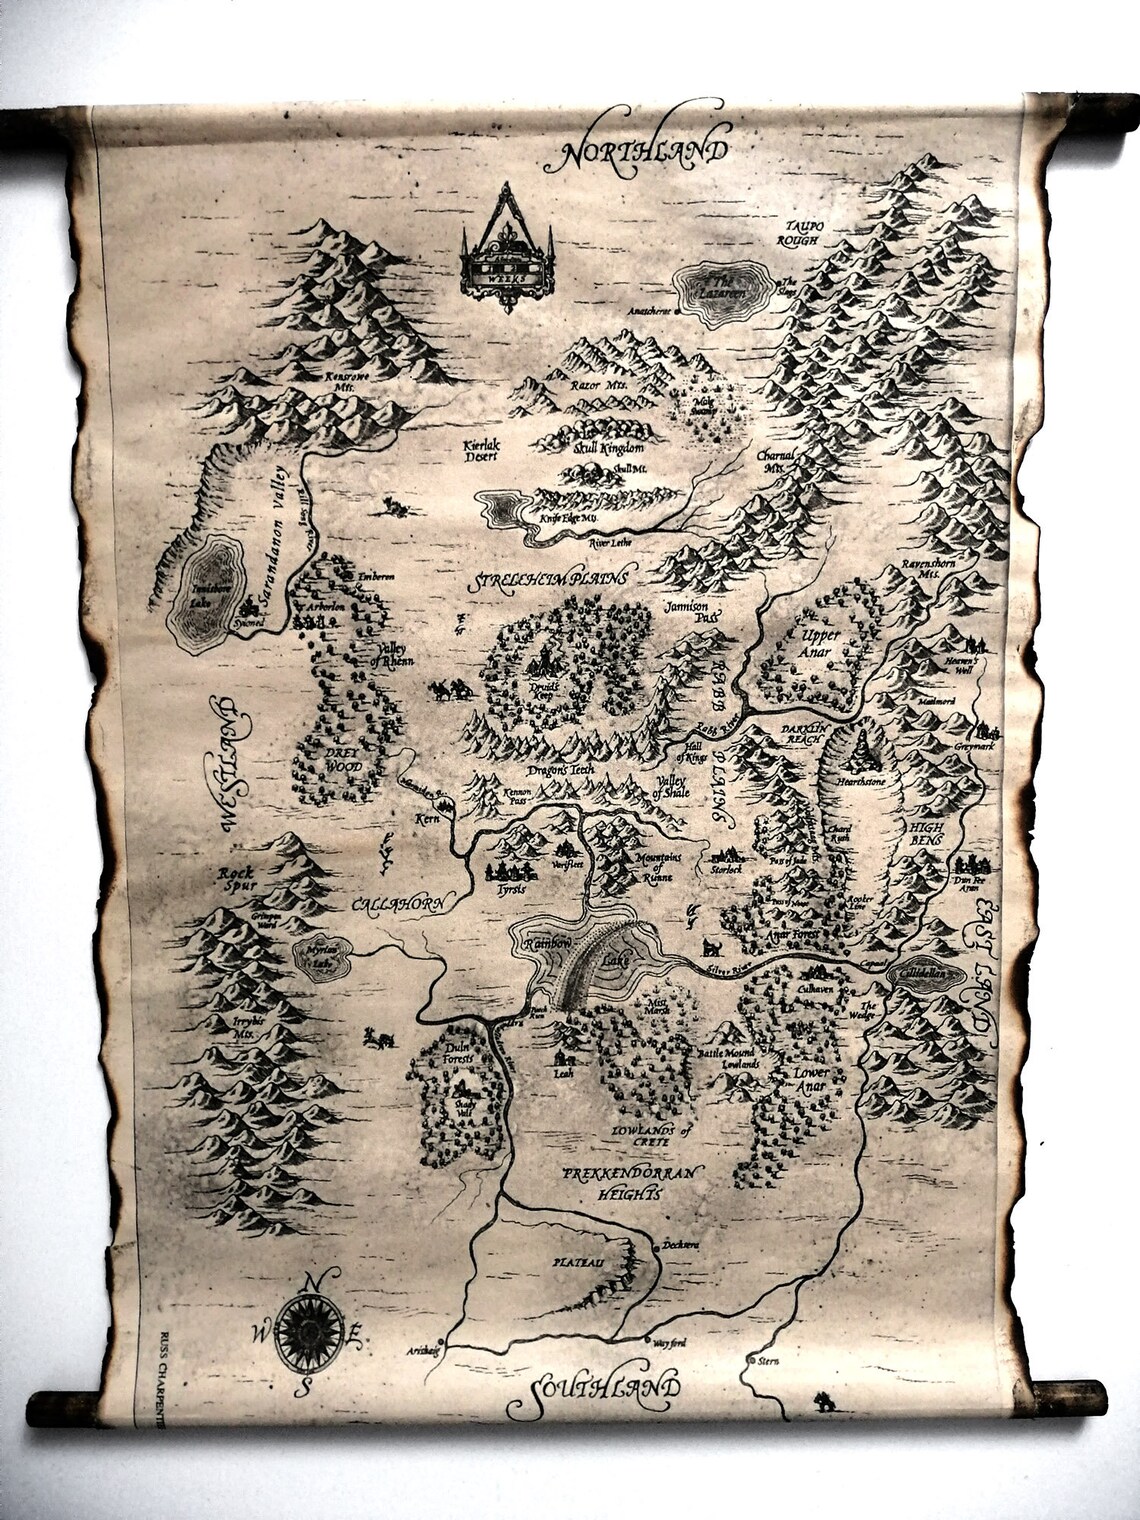 NORTHLAND
TAUPO
ROUGH
WEEKS
The
Lazareen
The
Slags
Anatcherae
Kensrowe
Mts.
Razor Mts.
Malg
Swamp
Kierlak
Desert
Skull Kingdom
Skull Mt.
Charnal
Mts.
Sarandanon Valley
Rill Song River
Knife Edge Mts.
River Lethe
Innisbore
Lake
Syioned
Emberen
Arborlon
STRELEHEIM PLAINS
Ravenshorn
Mts.
Jannison
Pass
Valley
of Rhenn
Upper
Anar
Heaven's
Well
Druid's
Keep
RABB
PLAINS
Rabb River
Malmord
DARKLIN
REACH
Greymark
WESTLAND
DREY
WOOD
Hall
of Kings
Dragon's Teeth
Hearthstone
Kennon
Pass
Valley
of Shale
Kern
Varfleet
Tyrsis
Mountains
of Runne
Storlock
Pass of Jade
Chard
Rush
HIGH
BENS
Dun Fee
Aran
Rock
Spur
Grimpen
Ward
CALLAHORN
Pass of Noose
Rooker
Line
Anar Forest
EASTLAND
Myrian
Lake
Rainbow
Lake
Silver River
Capaal
Cillidellan
Culhaven
The
Wedge
Irrybis
Mts.
Mist
Marsh
Duln
Forests
Shady
Vale
River
Leah
Battle Mound
Lowlands
Lower
Anar
LOWLANDS of
CRETE
PREKKENDORRAN
HEIGHTS
PLATEAU
Dechtera
N
W E
S
Arishaig
Wayford
Stern
SOUTHLAND
RUSS CHARPENTIE